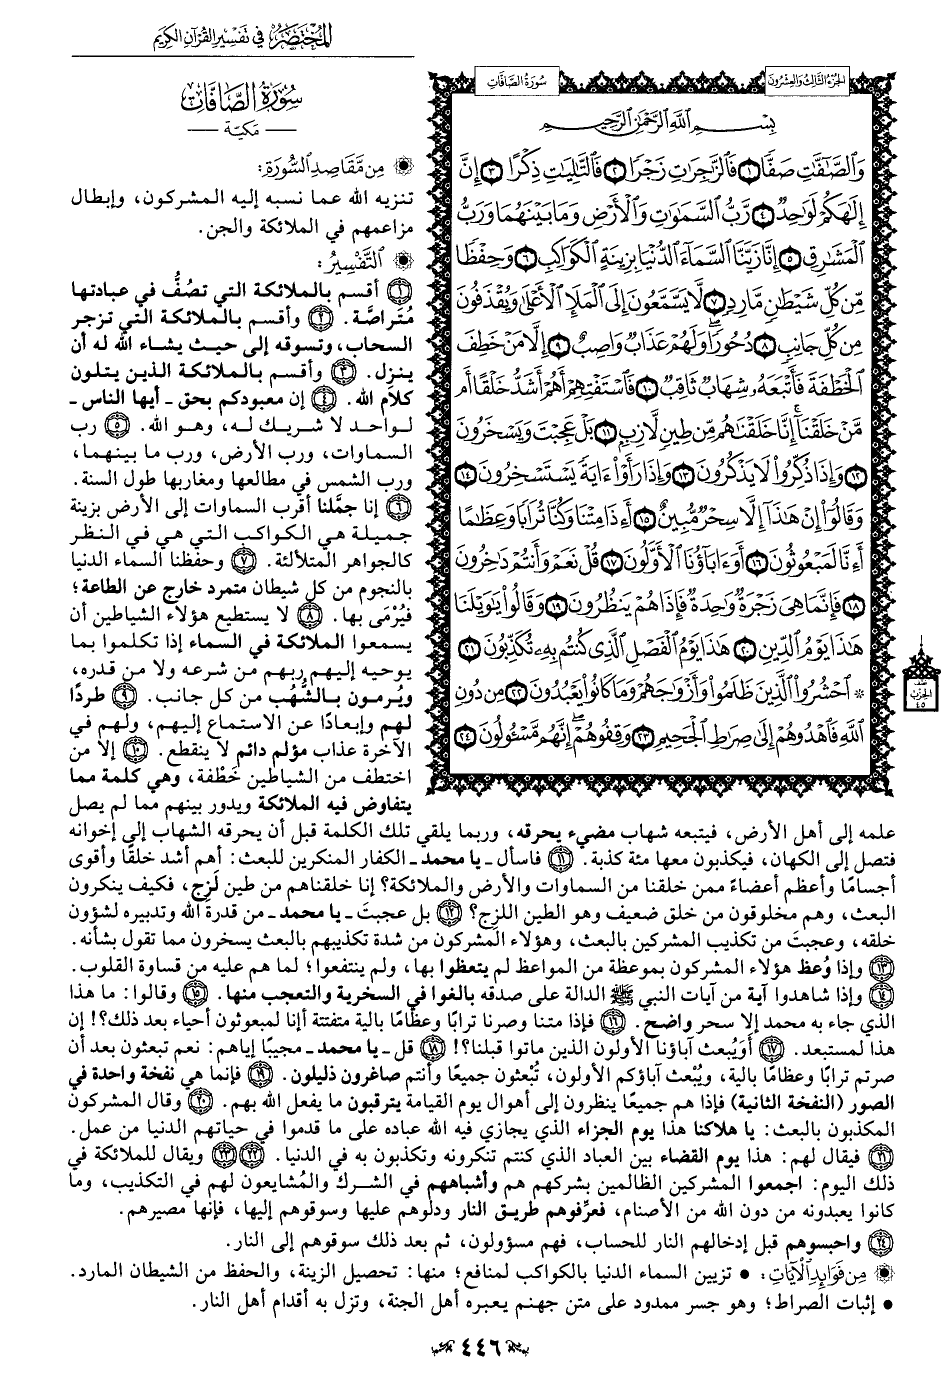 المختصر في تفسير القرآن الكريم
الجزء الثالث والعشرون
سورة الصافات
بِسْمِ اللَّهِ الرَّحْمَٰنِ الرَّحِيمِ
وَالصَّافَّاتِ صَفًّا ١ فَالزَّاجِرَاتِ زَجْرًا ٢ فَالتَّالِيَاتِ ذِكْرًا ٣ إِنَّ
إِلَٰهَكُمْ لَوَاحِدٌ ٤ رَّبُّ السَّمَاوَاتِ وَالْأَرْضِ وَمَا بَيْنَهُمَا وَرَبُّ
الْمَشَارِقِ ٥ إِنَّا زَيَّنَّا السَّمَاءَ الدُّنْيَا بِزِينَةٍ الْكَوَاكِبِ ٦ وَحِفْظًا
مِّن كُلِّ شَيْطَانٍ مَّارِدٍ ٧ لَّا يَسَّمَّعُونَ إِلَى الْمَلَإِ الْأَعْلَىٰ وَيُقْذَفُونَ
مِن كُلِّ جَانِبٍ ٨ دُحُورًا ۖ وَلَهُمْ عَذَابٌ وَاصِبٌ ٩ إِلَّا مَنْ خَطِفَ
الْخَطْفَةَ فَأَتْبَعَهُ شِهَابٌ ثَاقِبٌ ١٠ فَاسْتَفْتِهِمْ أَهُمْ أَشَدُّ خَلْقًا أَم
مَّنْ خَلَقْنَا ۚ إِنَّا خَلَقْنَاهُم مِّن طِينٍ لَّازِبٍ ١١ بَلْ عَجِبْتَ وَيَسْخَرُونَ
١٢ وَإِذَا ذُكِّرُوا لَا يَذْكُرُونَ ١٣ وَإِذَا رَأَوْا آيَةً يَسْتَسْخِرُونَ ١٤
وَقَالُوا إِنْ هَٰذَا إِلَّا سِحْرٌ مُّبِينٌ ١٥ أَءِذَا مِتْنَا وَكُنَّا تُرَابًا وَعِظَامًا
أَءِنَّا لَمَبْعُوثُونَ ١٦ أَوَآبَاؤُنَا الْأَوَّلُونَ ١٧ قُلْ نَعَمْ وَأَنتُمْ دَاخِرُونَ
١٨ فَإِنَّمَا هِيَ زَجْرَةٌ وَاحِدَةٌ فَإِذَا هُمْ يَنظُرُونَ ١٩ وَقَالُوا يَا وَيْلَنَا
هَٰذَا يَوْمُ الدِّينِ ٢٠ هَٰذَا يَوْمُ الْفَصْلِ الَّذِي كُنتُم بِهِ تُكَذِّبُونَ ٢١
* احْشُرُوا الَّذِينَ ظَلَمُوا وَأَزْوَاجَهُمْ وَمَا كَانُوا يَعْبُدُونَ ٢٢ مِن دُونِ
اللَّهِ فَاهْدُوهُمْ إِلَىٰ صِرَاطِ الْجَحِيمِ ٢٣ وَقِفُوهُمْ ۖ إِنَّهُم مَّسْئُولُونَ ٢٤
الحزب
٤٥
سورة الصافات
— مكية —
من مقاصد السورة:
تنزيه الله عما نسبه إليه المشركون، وإبطال
مزاعمهم في الملائكة والجن.
التفسير:
١ أقسم بالملائكة التي تصُفُّ في عبادتها
مُتراصَّة. ٢ وأقسم بالملائكة التي تزجر
السحاب، وتسوقه إلى حيث يشاء الله له أن
ينزل. ٣ وأقسم بالملائكة الذين يتلون
كلام الله. ٤ إن معبودكم بحق - أيها الناس -
لواحد لا شريك له، وهو الله. ٥ رب
السماوات، ورب الأرض، ورب ما بينهما،
ورب الشمس في مطالعها ومغاربها طول السنة.
٦ إنا جمَّلنا أقرب السماوات إلى الأرض بزينة
جميلة هي الكواكب التي هي في النظر
كالجواهر المتلألئة. ٧ وحفظنا السماء الدنيا
بالنجوم من كل شيطان متمرد خارج عن الطاعة؛
فيُرْمَى بها. ٨ لا يستطيع هؤلاء الشياطين أن
يسمعوا الملائكة في السماء إذا تكلموا بما
يوحيه إليهم ربهم من شرعه ولا من قدره،
ويُرمون بالشُّهُب من كل جانب. ٩ طردًا
لهم وإبعادًا عن الاستماع إليهم، ولهم في
الآخرة عذاب مؤلم دائم لا ينقطع. ١٠ إلا من
اختطف من الشياطين خَطْفة، وهي كلمة مما
يتفاوض فيه الملائكة ويدور بينهم مما لم يصل
علمه إلى أهل الأرض، فيتبعه شهاب مضيء يحرقه، وربما يلقي تلك الكلمة قبل أن يحرقه الشهاب إلى إخوانه
فتصل إلى الكهان، فيكذبون معها مئة كذبة. ١١ فاسأل - يا محمد - الكفار المنكرين للبعث: أهم أشد خلقًا وأقوى
أجسامًا وأعظم أعضاءً ممن خلقنا من السماوات والأرض والملائكة؟ إنا خلقناهم من طين لَزِج، فكيف ينكرون
البعث، وهم مخلوقون من خلق ضعيف وهو الطين اللزج؟ ١٢ بل عجبتَ - يا محمد - من قدرة الله وتدبيره لشؤون
خلقه، وعجبتَ من تكذيب المشركين بالبعث، وهؤلاء المشركون من شدة تكذيبهم بالبعث يسخرون مما تقول بشأنه.
١٣ وإذا وُعظ هؤلاء المشركون بموعظة من المواعظ لم يتعظوا بها، ولم ينتفعوا؛ لما هم عليه من قساوة القلوب.
١٤ وإذا شاهدوا آية من آيات النبي ﷺ الدالة على صدقه بالغوا في السخرية والتعجب منها. ١٥ وقالوا: ما هذا
الذي جاء به محمد إلا سحر واضح. ١٦ فإذا متنا وصرنا ترابًا وعظامًا بالية متفتتة أإنا لمبعوثون أحياء بعد ذلك؟! إن
هذا لمستبعد. ١٧ أوَيُبعث آباؤنا الأولون الذين ماتوا قبلنا؟! ١٨ قل - يا محمد - مجيبًا إياهم: نعم تبعثون بعد أن
صرتم ترابًا وعظامًا بالية، ويُبْعث آباؤكم الأولون، تُبْعثون جميعًا وأنتم صاغرون ذليلون. ١٩ فإنما هي نفخة واحدة في
الصور (النفخة الثانية) فإذا هم جميعًا ينظرون إلى أهوال يوم القيامة يترقبون ما يفعل الله بهم. ٢٠ وقال المشركون
المكذبون بالبعث: يا هلاكنا هذا يوم الجزاء الذي يجازي فيه الله عباده على ما قدموا في حياتهم الدنيا من عمل.
٢١ فيقال لهم: هذا يوم القضاء بين العباد الذي كنتم تنكرونه وتكذبون به في الدنيا. ٢٢ ٢٣ ويقال للملائكة في
ذلك اليوم: اجمعوا المشركين الظالمين بشركهم هم وأشباههم في الشرك والمُشايعون لهم في التكذيب، وما
كانوا يعبدونه من دون الله من الأصنام، فعرِّفوهم طريق النار ودلوهم عليها وسوقوهم إليها، فإنها مصيرهم.
٢٤ واحبسوهم قبل إدخالهم النار للحساب، فهم مسؤولون، ثم بعد ذلك سوقوهم إلى النار.
من فوائد الآيات: • تزيين السماء الدنيا بالكواكب لمنافع؛ منها: تحصيل الزينة، والحفظ من الشيطان المارد.
• إثبات الصراط؛ وهو جسر ممدود على متن جهنم يعبره أهل الجنة، وتزل به أقدام أهل النار.
٤٤٦